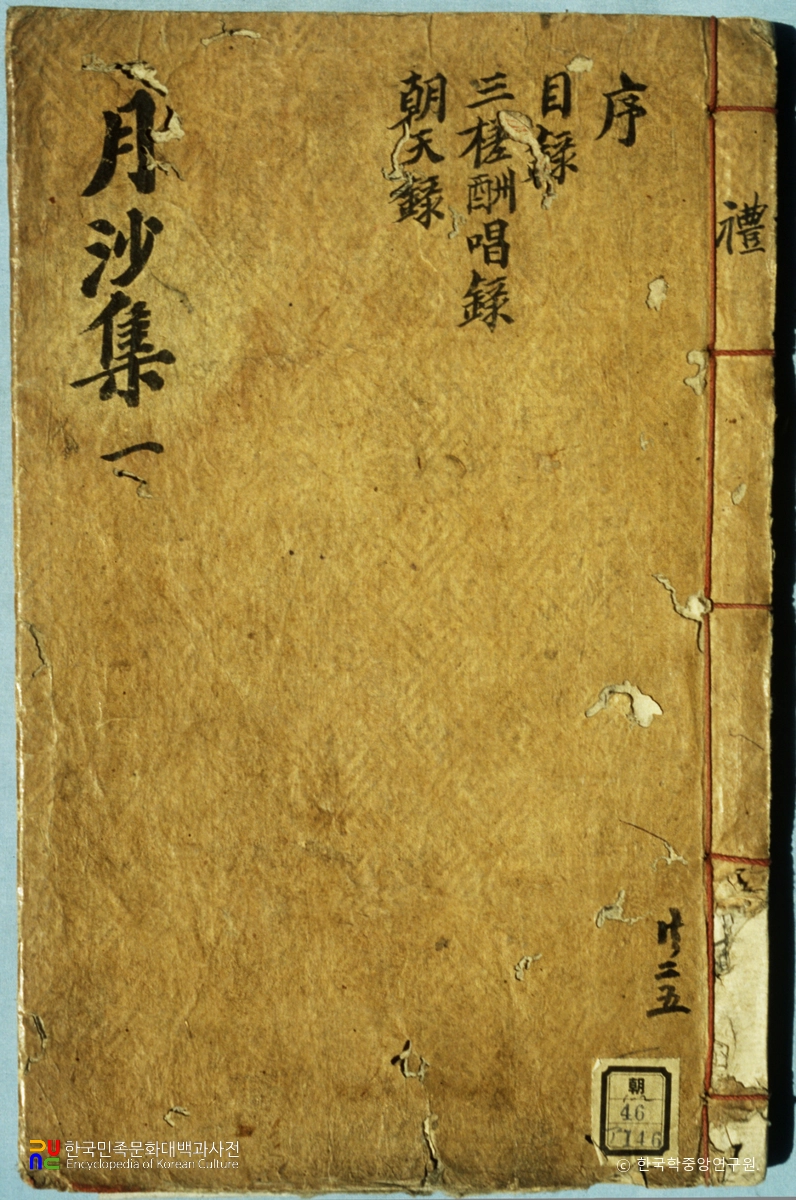 禮
序
目錄
三槎酬唱錄
朝天錄
月沙集 一
共二五
朝
46
146
한국민족문화대백과사전
Encyclopedia of Korean Culture
© 한국학중앙연구원